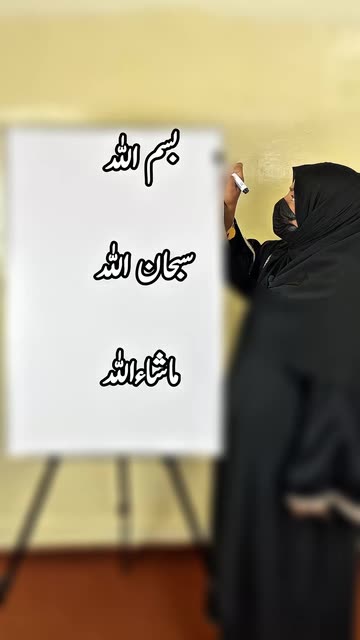 بسم اللہ
سبحان اللہ
ماشاءاللہ